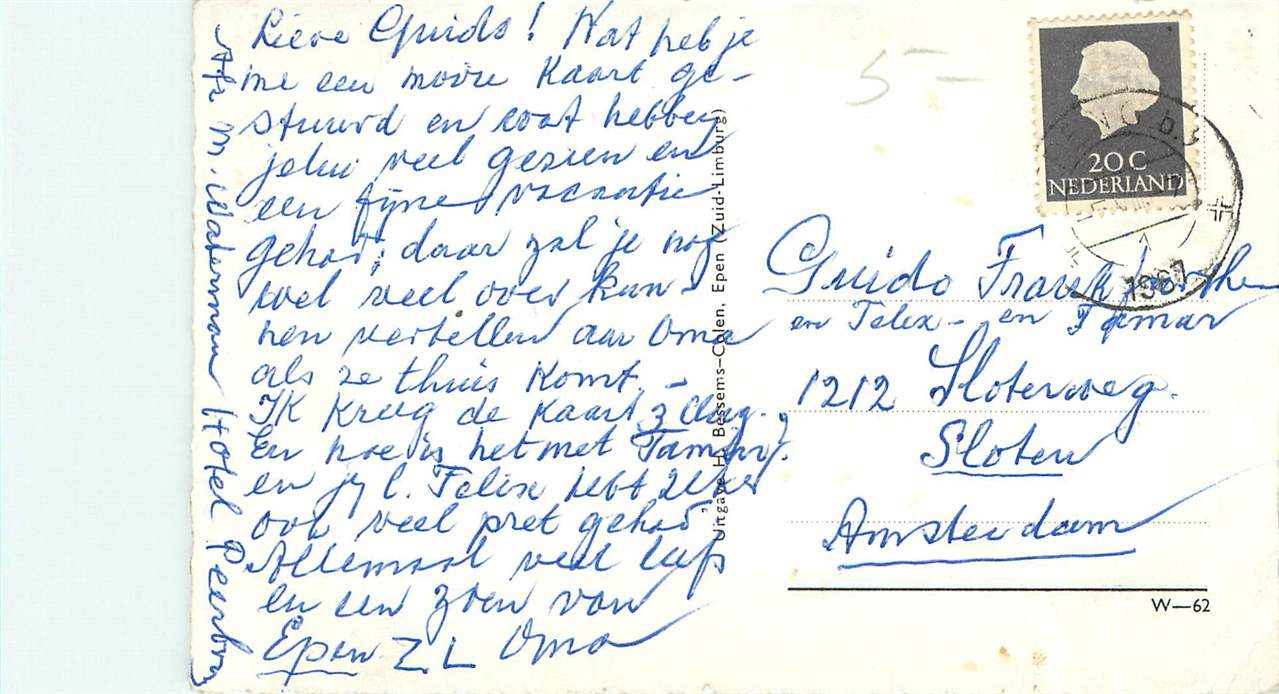 Lieve Guido! Wat heb je
me een mooie kaart ge-
stuurd en wat hebben
jelui veel gezien en
een fijne vacantie
gehad; daar zal je nog
wel veel over kun-
nen vertellen aan Oma
als ze thuis komt. -
Ik kreeg de kaart 3 Aug.
en hoe is het met Tamar?
en jy l. Felix hebt zeker
ook veel pret gehad,
Allemaal veel liefs
en een zoen van
Epen Z. L Oma
Afz M. Waterman Hotel Peerboom
Uitgave H. Bessems-Colen, Epen (Zuid-Limburg)
5 -
20 C
NEDERLAND
1967
Guido
en Felix - en Tamar
1212 Sloterweg.
Sloten
Amsterdam
W-62